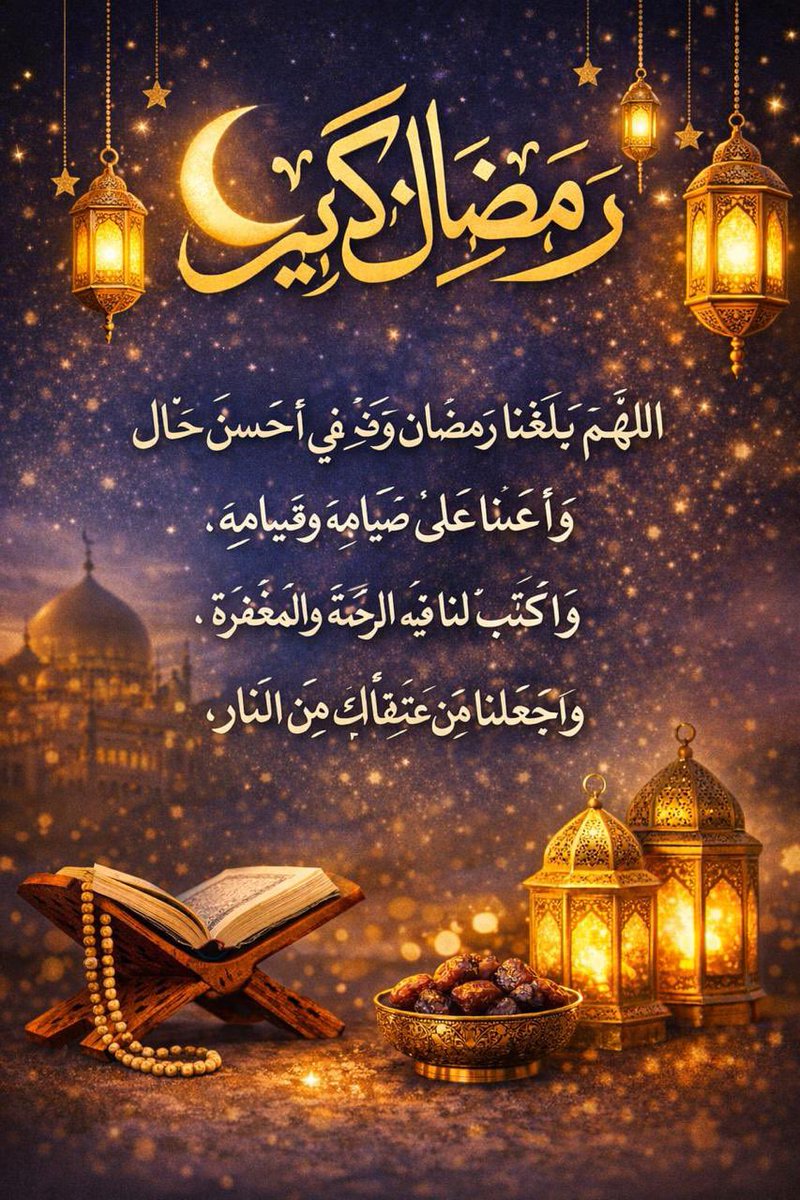 رَمَضَان كَرِيم
اللهَّمَ بَلَغنا رَمضَان وَفَهِ في أحَسنَ حَال
وَأعَىنا عَلىُ صَيَامِهَ وقَيىامِهَ.
وَاكَتَبْ لنا فيَه الرحَمَةَ والمَغَفرَة .
واَجَعَلنا مَِن عَتَقِأكَ مِنَ النَار،